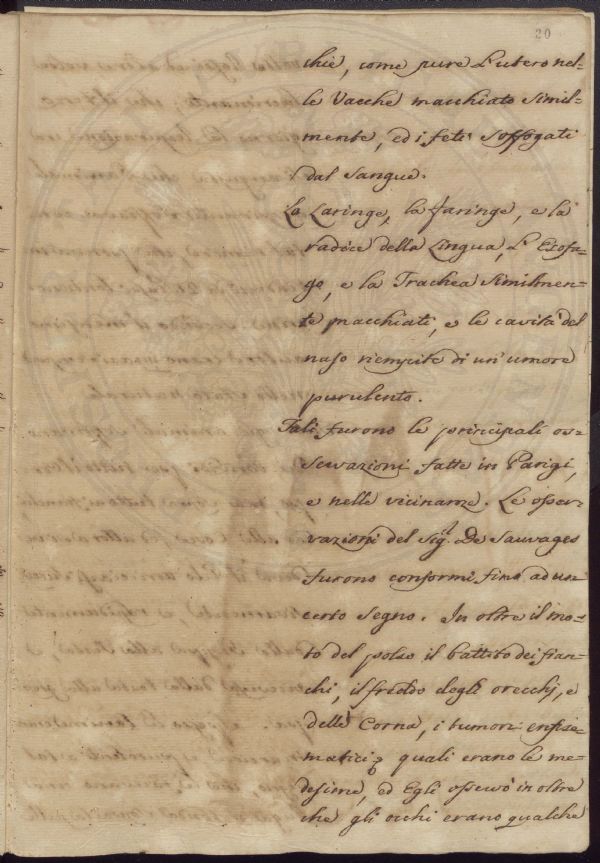 20
chie, come pure L'utero nel-
le Vacche macchiato Simil-
mente, ed i feti Soffogati
dal Sangue.
La Laringe, la Faringe, e la
radice della Lingua, L'Esofa-
go, e la Trachea Similmen-
te macchiati, e le cavità del
naso riempite di un'umore
purulento.
Tali furono le principali os-
servazioni fatte in Parigi,
e nelle vicinanze. Le osser-
vazioni del Sig.r De Sauvages
furono conformi fino ad un
certo Segno. In oltre il mo-
to del polso il battito dei fian-
chi, il freddo degli orecchj, e
delle Corna, i tumori enfise-
matici quali erano le me-
desime, ed Egli osservò in oltre
che gli occhi erano qualche